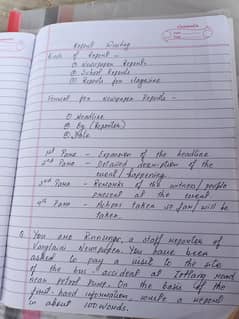 Classmate
Date
Page
Report Writing
Kinds of Report -
① Newspaper Reports
② School Reports
③ Reports for Magazine
Format for Newspaper Reports -
① Headline
② By (Reporter)
③ Date
1st Para - Expansion of the headline
2nd Para - Detailed description of the
event / happening.
3rd Para - Remarks of the witness/people
present at the event
4th Para - Actions taken so far/ will be
taken.
Q. You are Rinsunga, a staff reporter of
Vanglaini Newspaper. You have been
asked to pay a visit to the site
of the bus accident at Tottang Road
near petrol pump. On the basis of the
first hand information, write a report
in about 100 words.